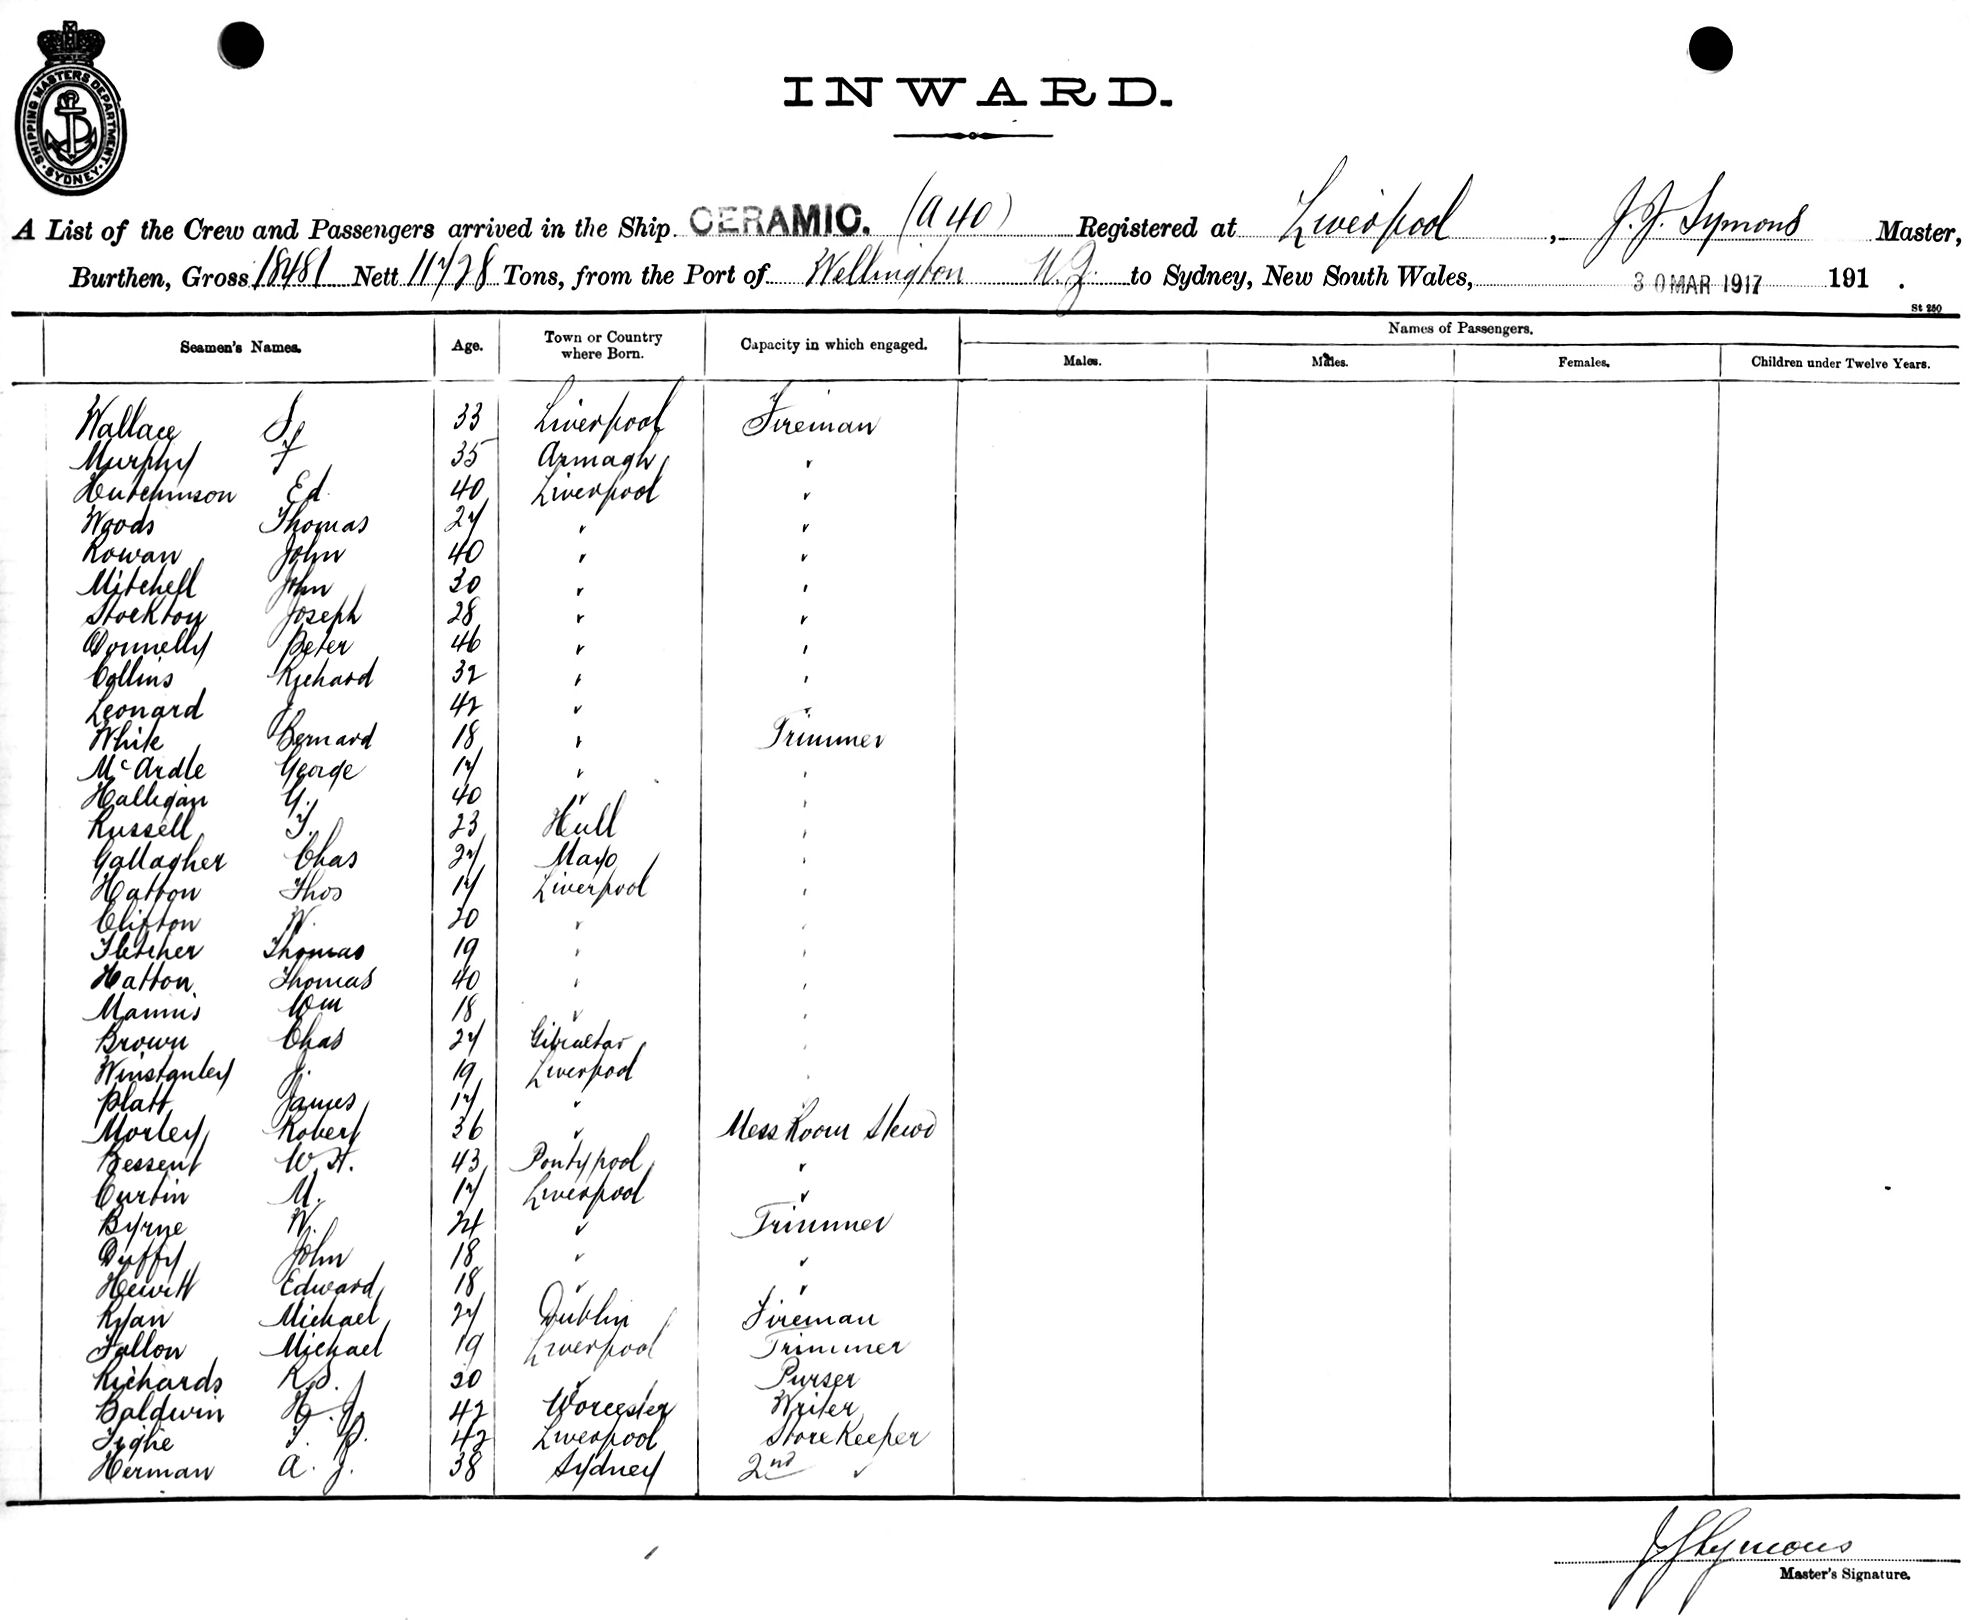 SHIPPING MASTERS DEPARTMENT. SYDNEY
INWARD.
A List of the Crew and Passengers arrived in the Ship CERAMIC. (A40) Registered at Liverpool, J. J. Symons Master,
Burthen, Gross 18481 Nett 11728 Tons, from the Port of Wellington N.Z. to Sydney, New South Wales, 30 MAR 1917 191 .
St 250
Seamen's Names. Age. Town or Country where Born. Capacity in which engaged. Names of Passengers.
Males. Males. Females. Children under Twelve Years.
Wallace 33 Liverpool Fireman
Murphy 35 Armagh "
Hutchinson Ed. 40 Liverpool "
Woods Thomas 27 " "
Rowan John 40 " "
Mitchell John 30 " "
Stockton Joseph 28 " "
Donnelly Peter 46 " "
Collins Richard 32 " "
Leonard J 42 " "
White Bernard 18 " Trimmer
McArdle George 17 " "
Halligan 40 " "
Russell T. 23 Hull "
Gallagher Chas 27 Mayo "
Hatton Thos 17 Liverpool "
Clifton W. 20 " "
Fletcher Thomas 19 " "
Hatton Thomas 40 " "
Mannis Wm 18 " "
Brown Chas 27 Gibraltar "
Winstanley J. 19 Liverpool "
Platt James 17 "
Morley Robert 36 " Mess Room Stewd
Bessent W. H. 43 Pontypool "
Curtin M. 17 Liverpool "
Byrne W. 24 " Trimmer
Duffy John 18 " "
Hewitt Edward 18 " "
Ryan Michael 27 Dublin Fireman
Fallon Michael 19 Liverpool Trimmer
Richards R.S. 30 " Purser
Baldwin H. J. 42 Worcester Writer
Tighe T. P. 42 Liverpool StoreKeeper
Herman A. J. 38 Sydney 2nd "
J J Symons
Master's Signature.